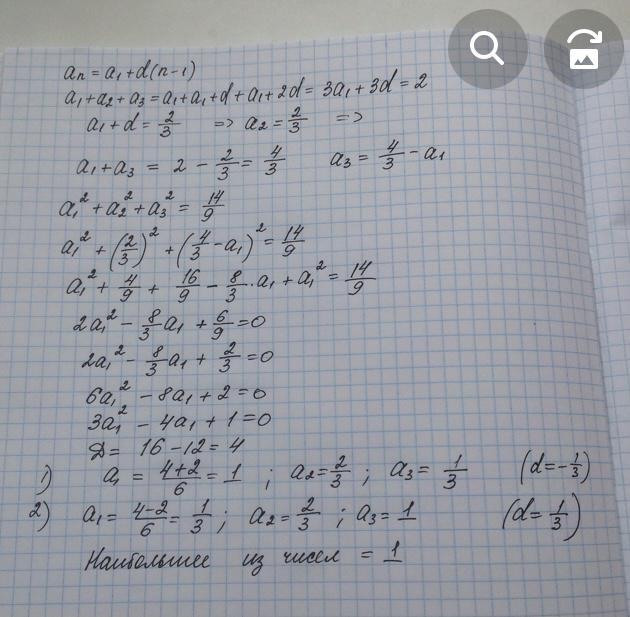 aₙ = a₁ + d(n-1)
a₁ + a₂ + a₃ = a₁ + a₁ + d + a₁ + 2d = 3a₁ + 3d = 2
a₁ + d = 2/3 => a₂ = 2/3 =>
a₁ + a₃ = 2 - 2/3 = 4/3 a₃ = 4/3 - a₁
a₁² + a₂² + a₃² = 14/9
a₁² + (2/3)² + (4/3 - a₁)² = 14/9
a₁² + 4/9 + 16/9 - 8/3 · a₁ + a₁² = 14/9
2a₁² - 8/3 a₁ + 6/9 = 0
2a₁² - 8/3 a₁ + 2/3 = 0
6a₁² - 8a₁ + 2 = 0
3a₁² - 4a₁ + 1 = 0
Д = 16 - 12 = 4
1) a₁ = (4+2)/6 = 1 ; a₂ = 2/3 ; a₃ = 1/3 (d = -1/3)
2) a₁ = (4-2)/6 = 1/3 ; a₂ = 2/3 ; a₃ = 1 (d = 1/3)
Наибольшее из чисел = 1